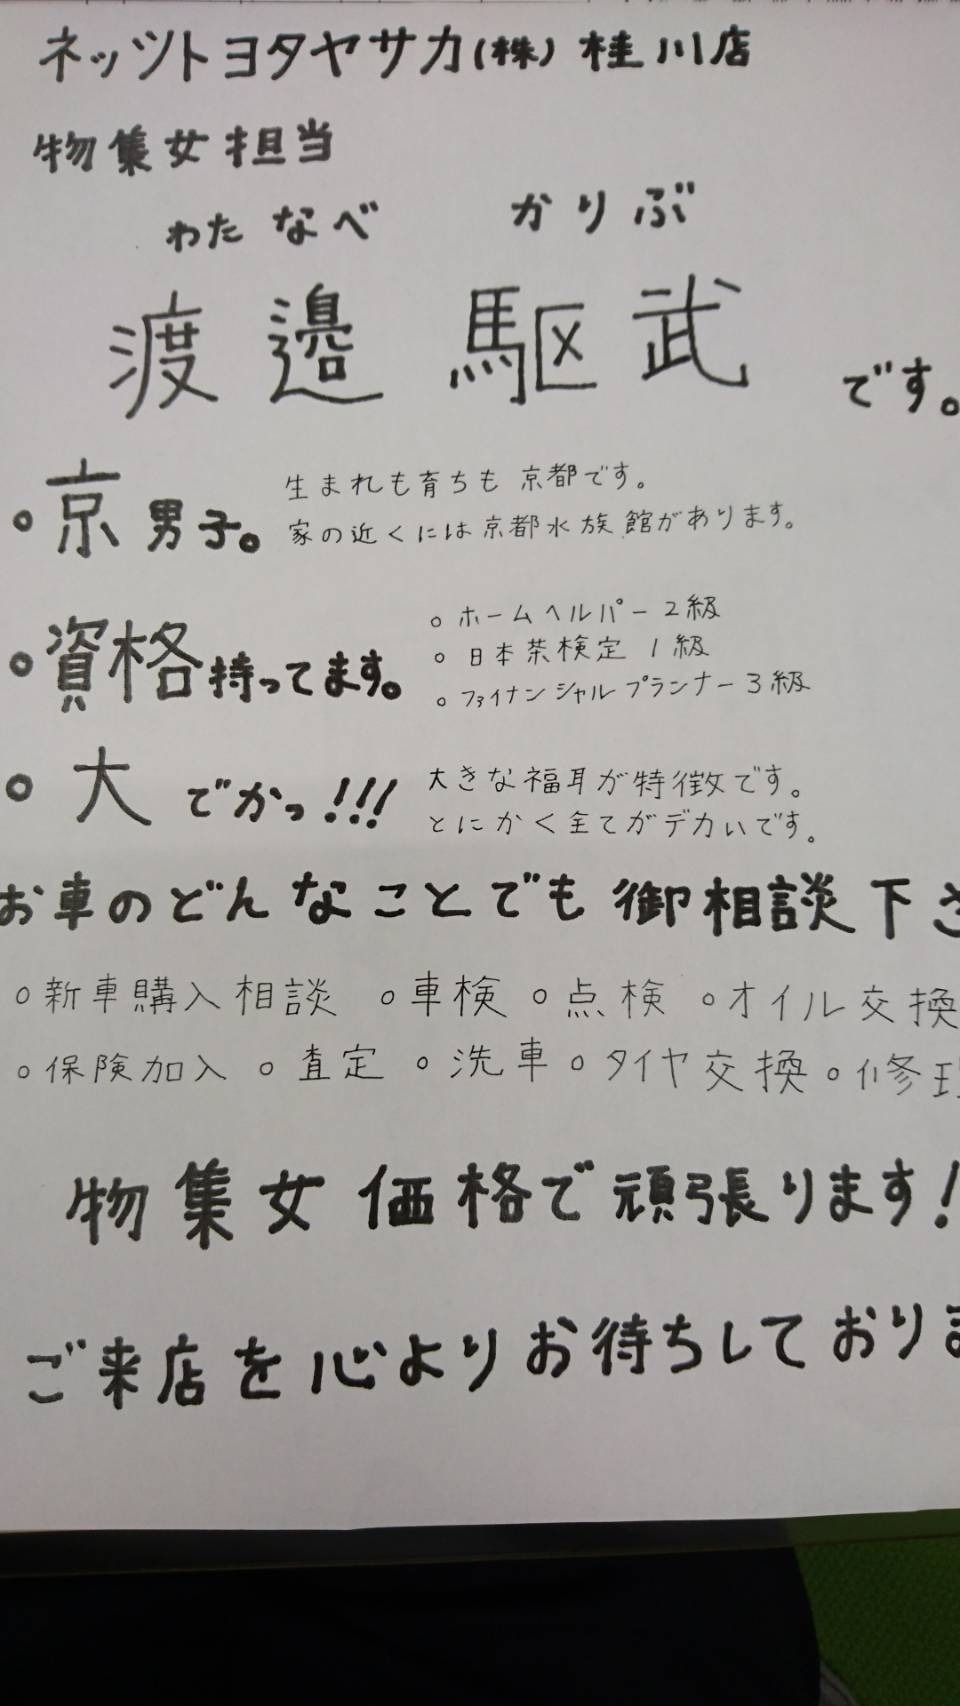 ネッツトヨタヤサカ(株) 桂川店
物集女担当
わたなべ かりぶ
渡邉 駆武 です。
。京男子。 生まれも育ちも京都です。
家の近くには京都水族館があります。
。資格持ってます。
。ホームヘルパー2級
。日本茶検定1級
。ファイナンシャルプランナー3級
。大でかっ!!! 大きな福耳が特徴です。
とにかく全てがデカいです。
お車のどんなことでも御相談下さ
。新車購入相談 。車検 。点検 。オイル交換
。保険加入 。査定 。洗車 。タイヤ交換 。修理
物集女価格で頑張ります!
ご来店を心よりお待ちしておりま